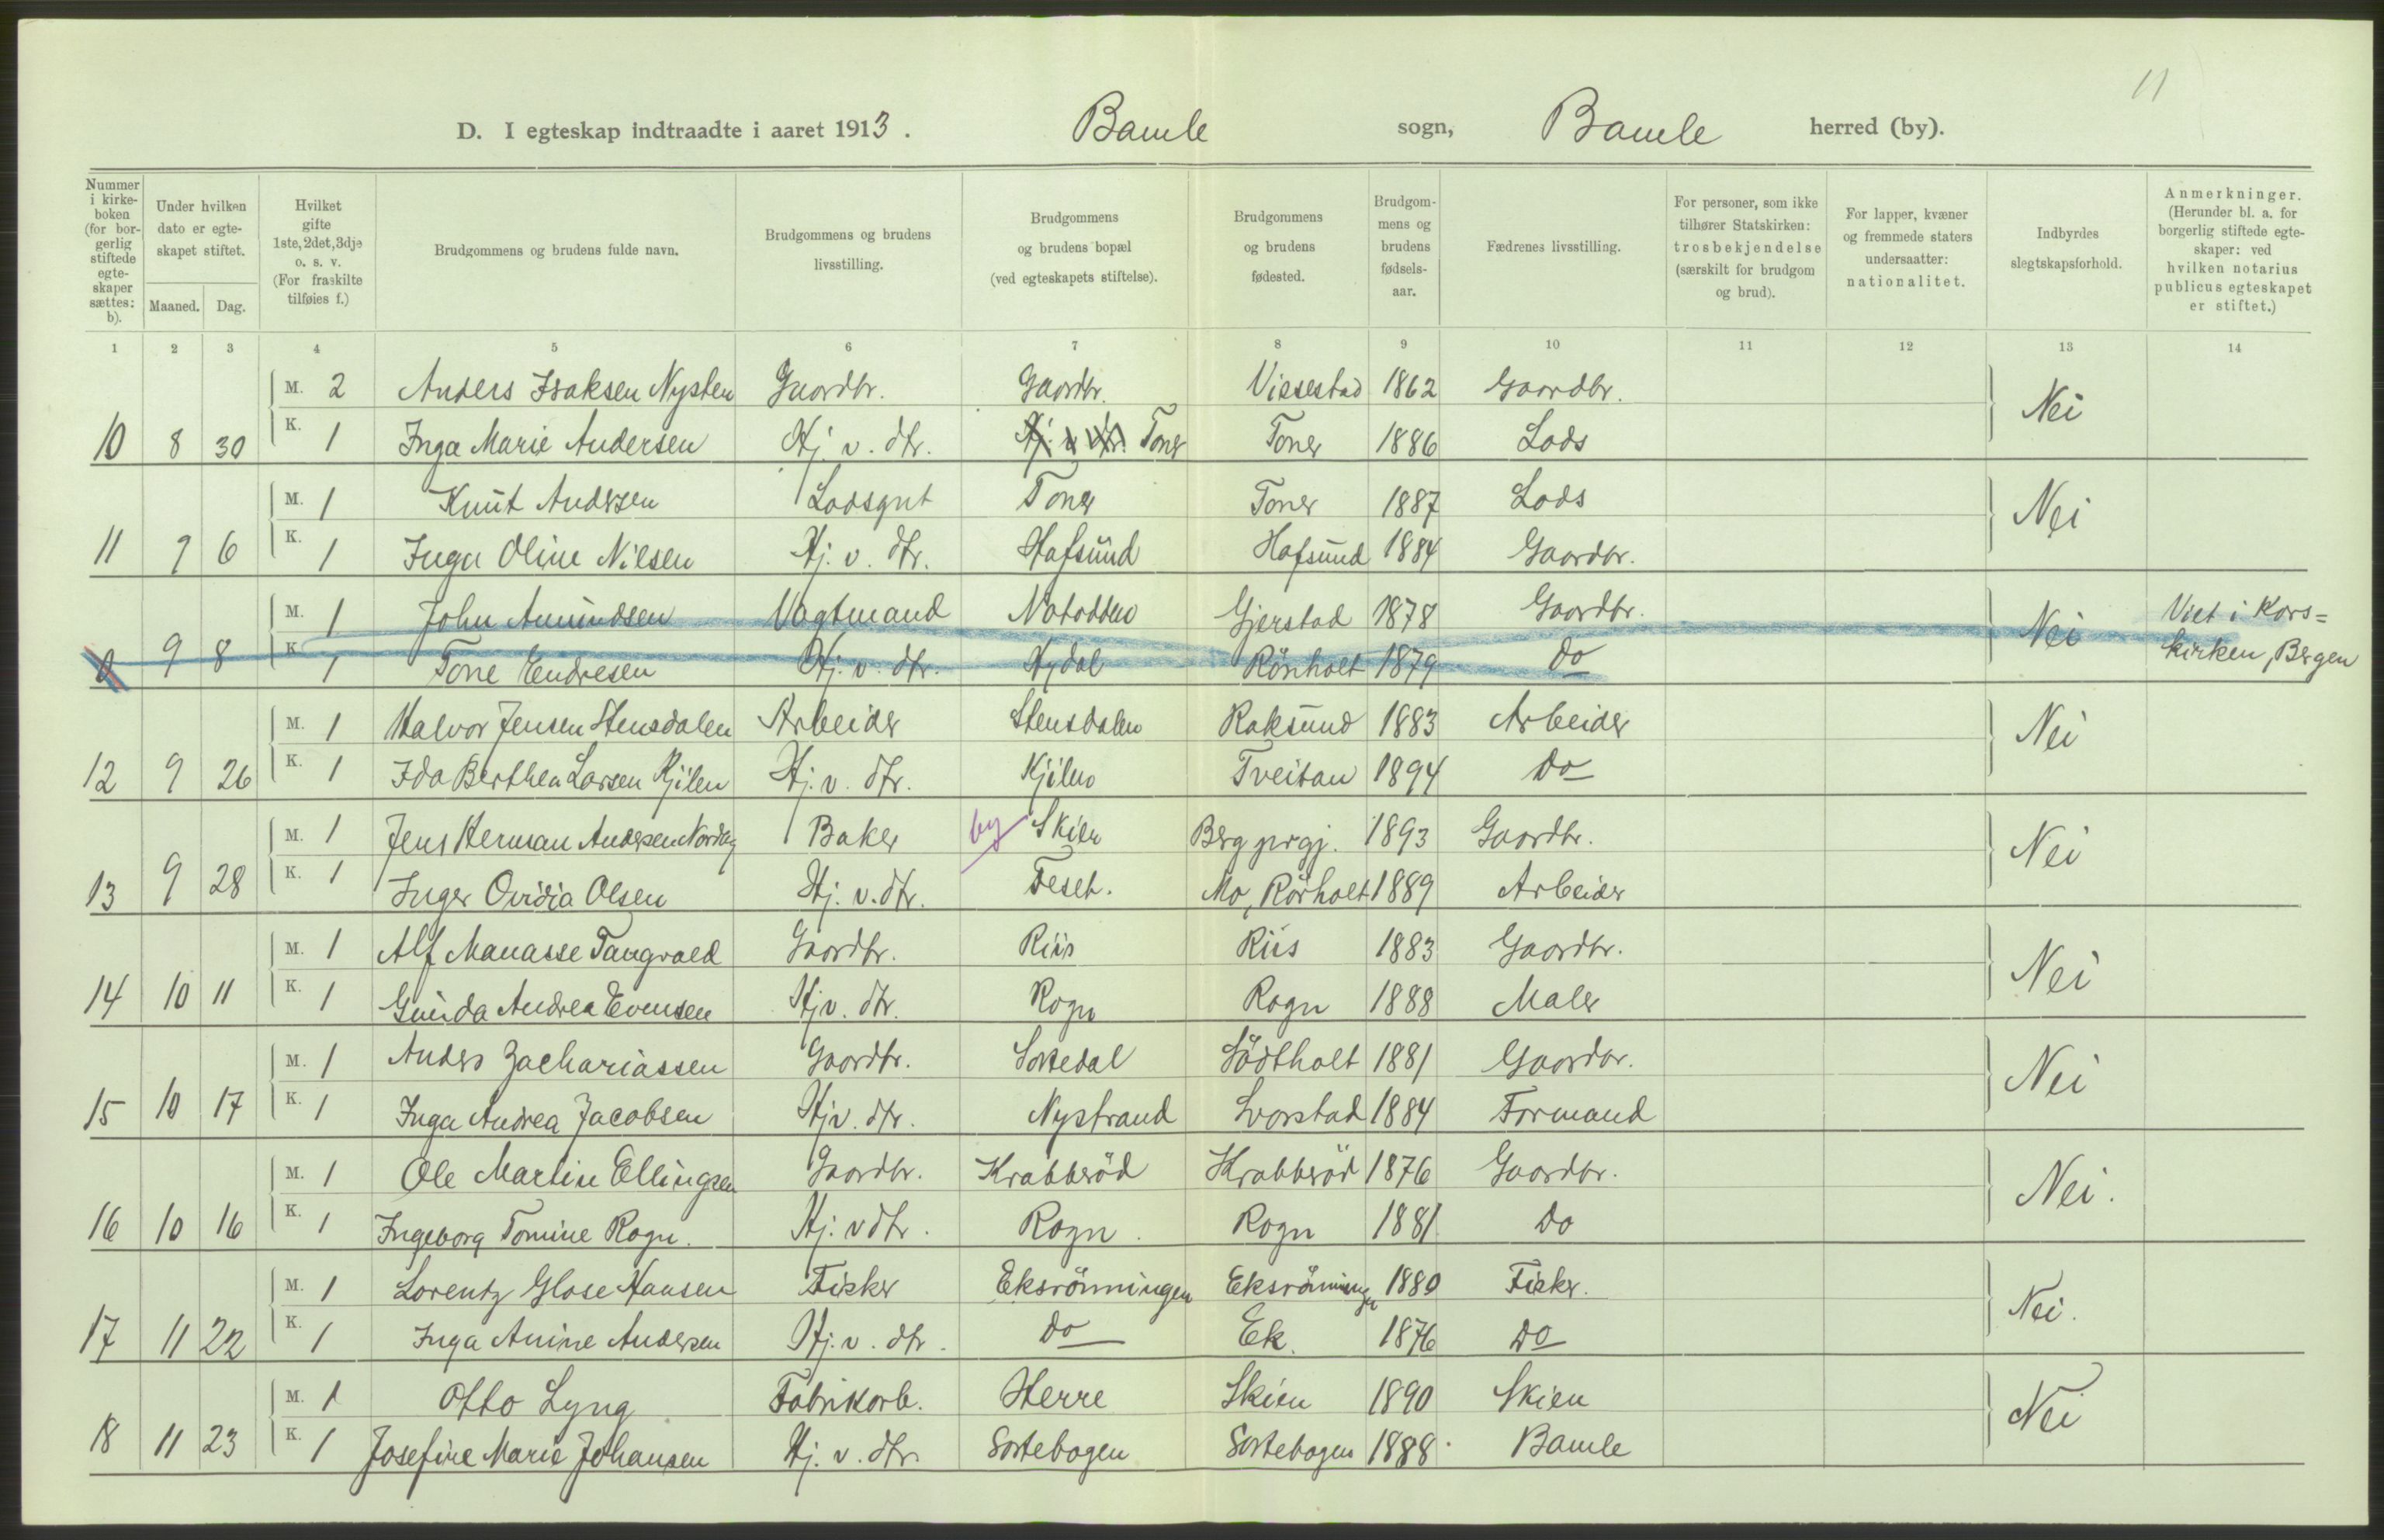 11
D. I egteskap indtraadte i aaret 1913. Bamle sogn, Bamle herred (by).
Nummer i kirkeboken (for borgerlig stiftede egteskaper sættes: b).
Under hvilken dato er egteskapet stiftet.
Maaned. Dag.
Hvilket gifte 1ste, 2det, 3dje o. s. v. (For fraskilte tilføies f.)
Brudgommens og brudens fulde navn.
Brudgommens og brudens livsstilling.
Brudgommens og brudens bopæl (ved egteskapets stiftelse).
Brudgommens og brudens fødested.
Brudgommens og brudens fødselsaar.
Fædrenes livsstilling.
For personer, som ikke tilhører Statskirken: trosbekjendelse (særskilt for brudgom og brud).
For lapper, kvæner og fremmede staters undersaatter: nationalitet.
Indbyrdes slegtskapsforhold.
Anmerkninger. (Herunder bl. a. for borgerlig stiftede egteskaper: ved hvilken notarius publicus egteskapet er stiftet.)
1 2 3 4 5 6 7 8 9 10 11 12 13 14
M. 2 Anders Isaksen Nysten Gaardbr. Gaardbr. Viesestad 1862 Gaardbr. Nei
10 8 30 K. 1 Inga Marie Andersen Hj. v. dtr. Toner Toner 1886 Lods
M. 1 Knut Andersen Lodsgut Toner Toner 1887 Lods Nei
11 9 6 K. 1 Inga Oline Nilsen Hj. v. dtr. Hafsund Hafsund 1884 Gaardbr.
M. 1 John Amundsen Vagtmand Notodden Gjerstad 1878 Gaardbr. Nei Viet i Kors=
9 8 K. 1 Tone Endresen Hj. v. dtr. Hydal Rönholt 1879 Do kirken, Bergen
M. 1 Halvor Jensen Stensdalen Arbeider Stensdalen Raksund 1883 Arbeider Nei
12 9 26 K. 1 Ida Berthea Larsen Kjilen Hj. v. dtr. Kjilen Tveitan 1894 Do
M. 1 Jens Herman Andersen Baker by Skien Berg prgj. 1893 Gaardbr. Nei
13 9 28 K. 1 Inger Ovidia Olsen Hj. v. dtr. Feset. Mo, Rörholt 1889 Arbeider
M. 1 Alf Manasse Tangvald Gaardbr. Riis Riis 1883 Gaardbr. Nei
14 10 11 K. 1 Gunda Andrea Evensen Hj v. dtr. Rogn Rogn 1888 Maler
M. 1 Anders Zachariassen Gaardbr. Sortedal Södtholt 1881 Gaardbr. Nei
15 10 17 K. 1 Inga Andrea Jacobsen Hj v. dtr. Nystrand Svorstad 1884 Formand
M. 1 Ole Martin Ellingsen Gaardbr. Krabberöd Krabberöd 1876 Gaardbr. Nei.
16 10 16 K. 1 Ingeborg Tomine Rogn. Hj. v dtr. Rogn. Rogn 1881 Do
M. 1 Lorentz Glose Hansen Fisker Eksrönningen Eksrönningen 1880 Fisker. Nei.
17 11 22 K. 1 Inga Anine Andersen Hj. v. dtr. Do Ek. 1876 Do
M. 1 Otto Lyng Fabrikarb. Herre Skien 1890 Skien Nei
18 11 23 K. 1 Josefine Marie Johansen Hj. v. dtr. Sortebogen Sortebogen 1888. Bamle